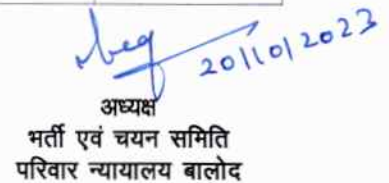 20/10/2023
अध्यक्ष
भर्ती एवं चयन समिति
परिवार न्यायालय बालोद